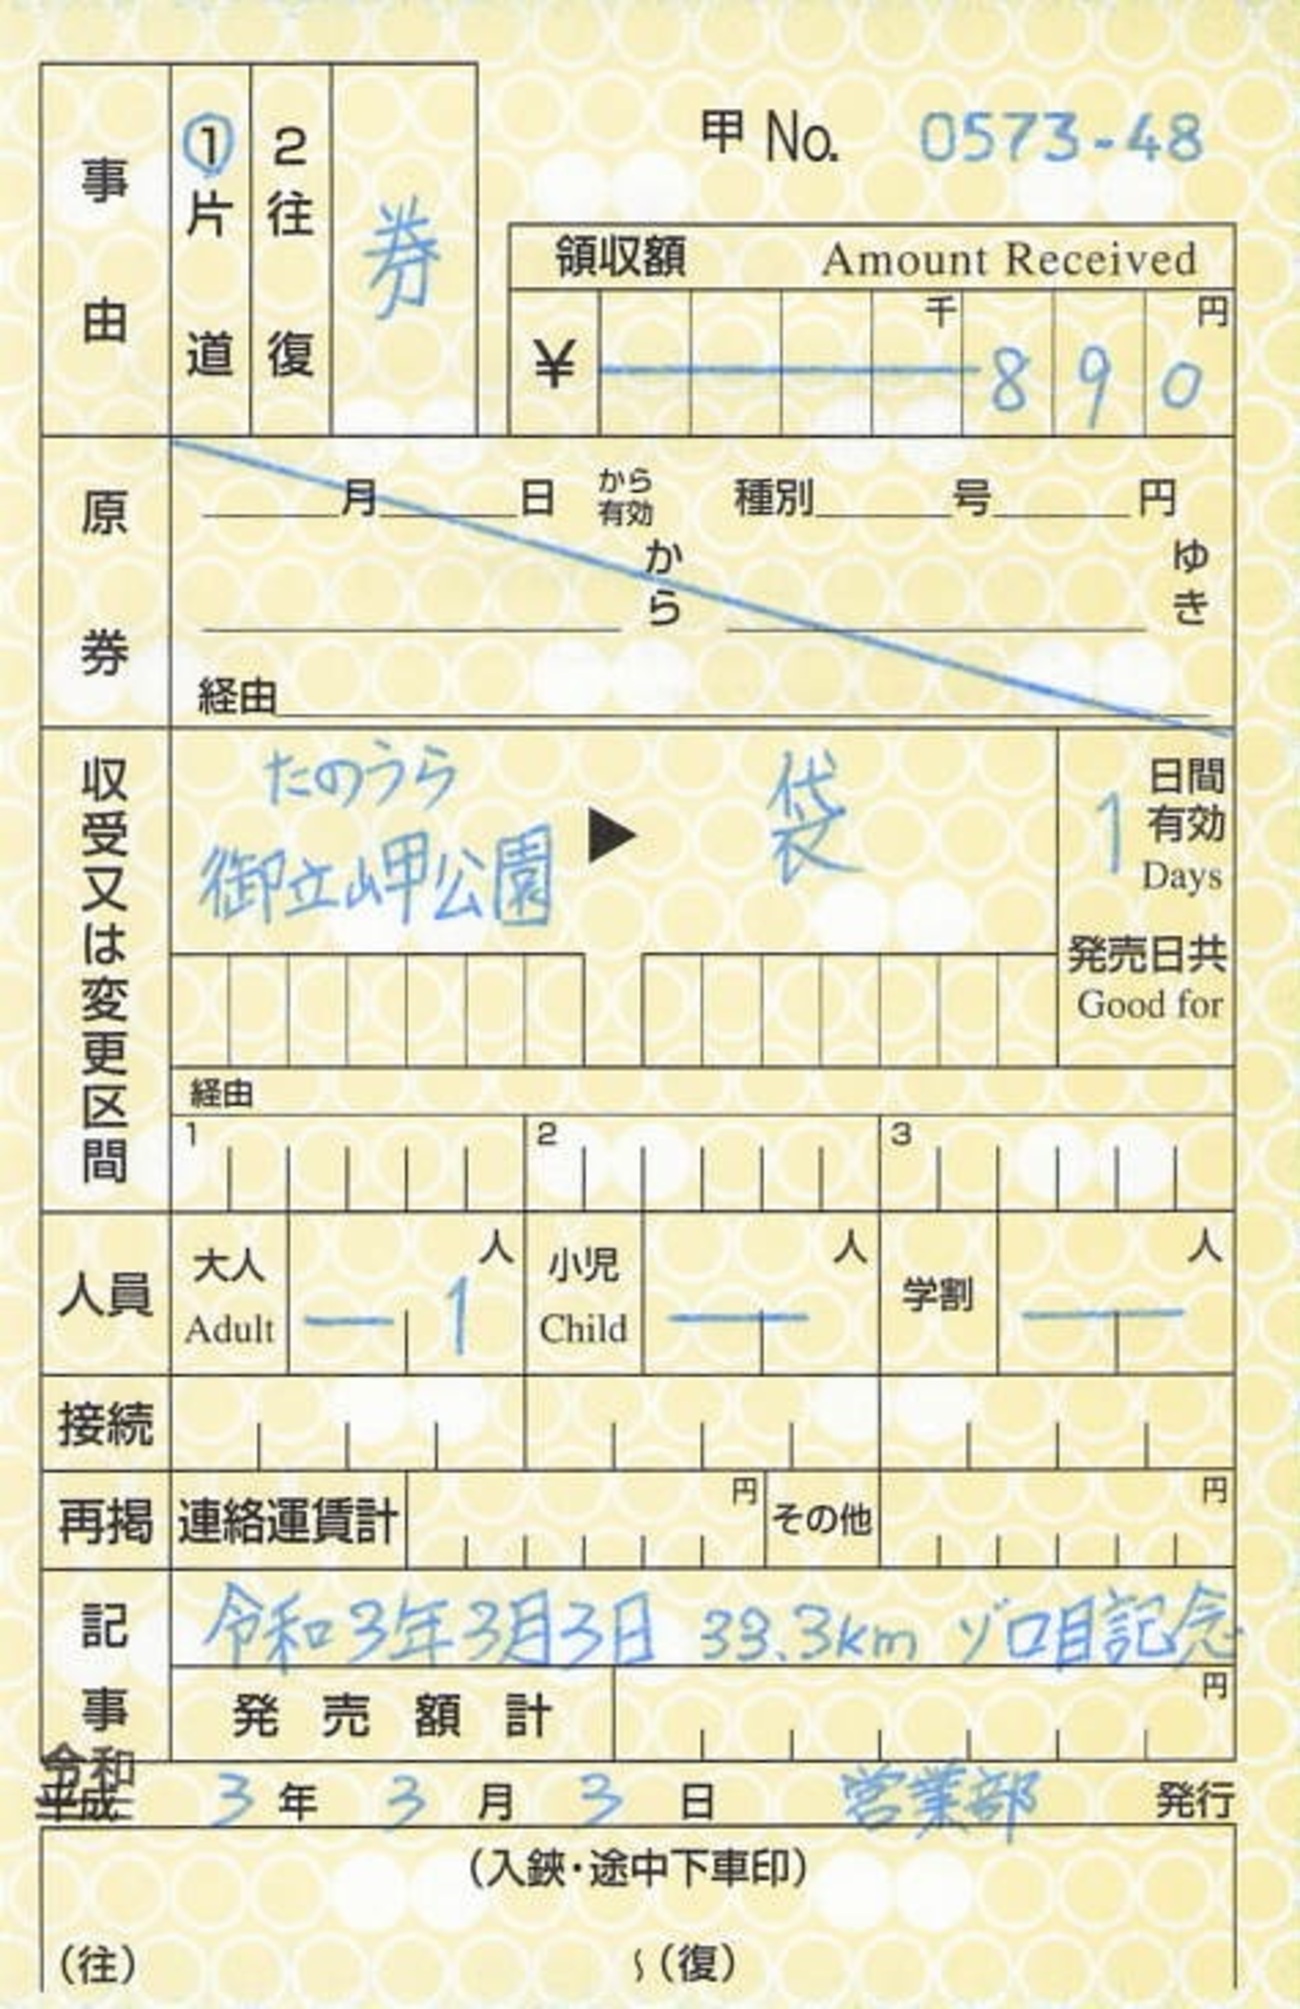 甲 No. 0573-48
事由
1 片道
2 往復
券
領収額 Amount Received
¥ 千 円
890
原券
月 日 から有効 種別 号 円
から ゆき
経由
収受又は変更区間
たのうら
御立岬公園 ▶ 袋
1 日間有効 Days
発売日共 Good for
経由
1 2 3
人員 大人 Adult 1 人 小児 Child 人 学割 人
接続
再掲 連絡運賃計 円 その他 円
記事 令和3年3月3日 33.3km ゾロ目記念
発売額計 円
令和
平成 3年 3月 3日 営業部 発行
(入鋏・途中下車印)
(往) 〜(復)